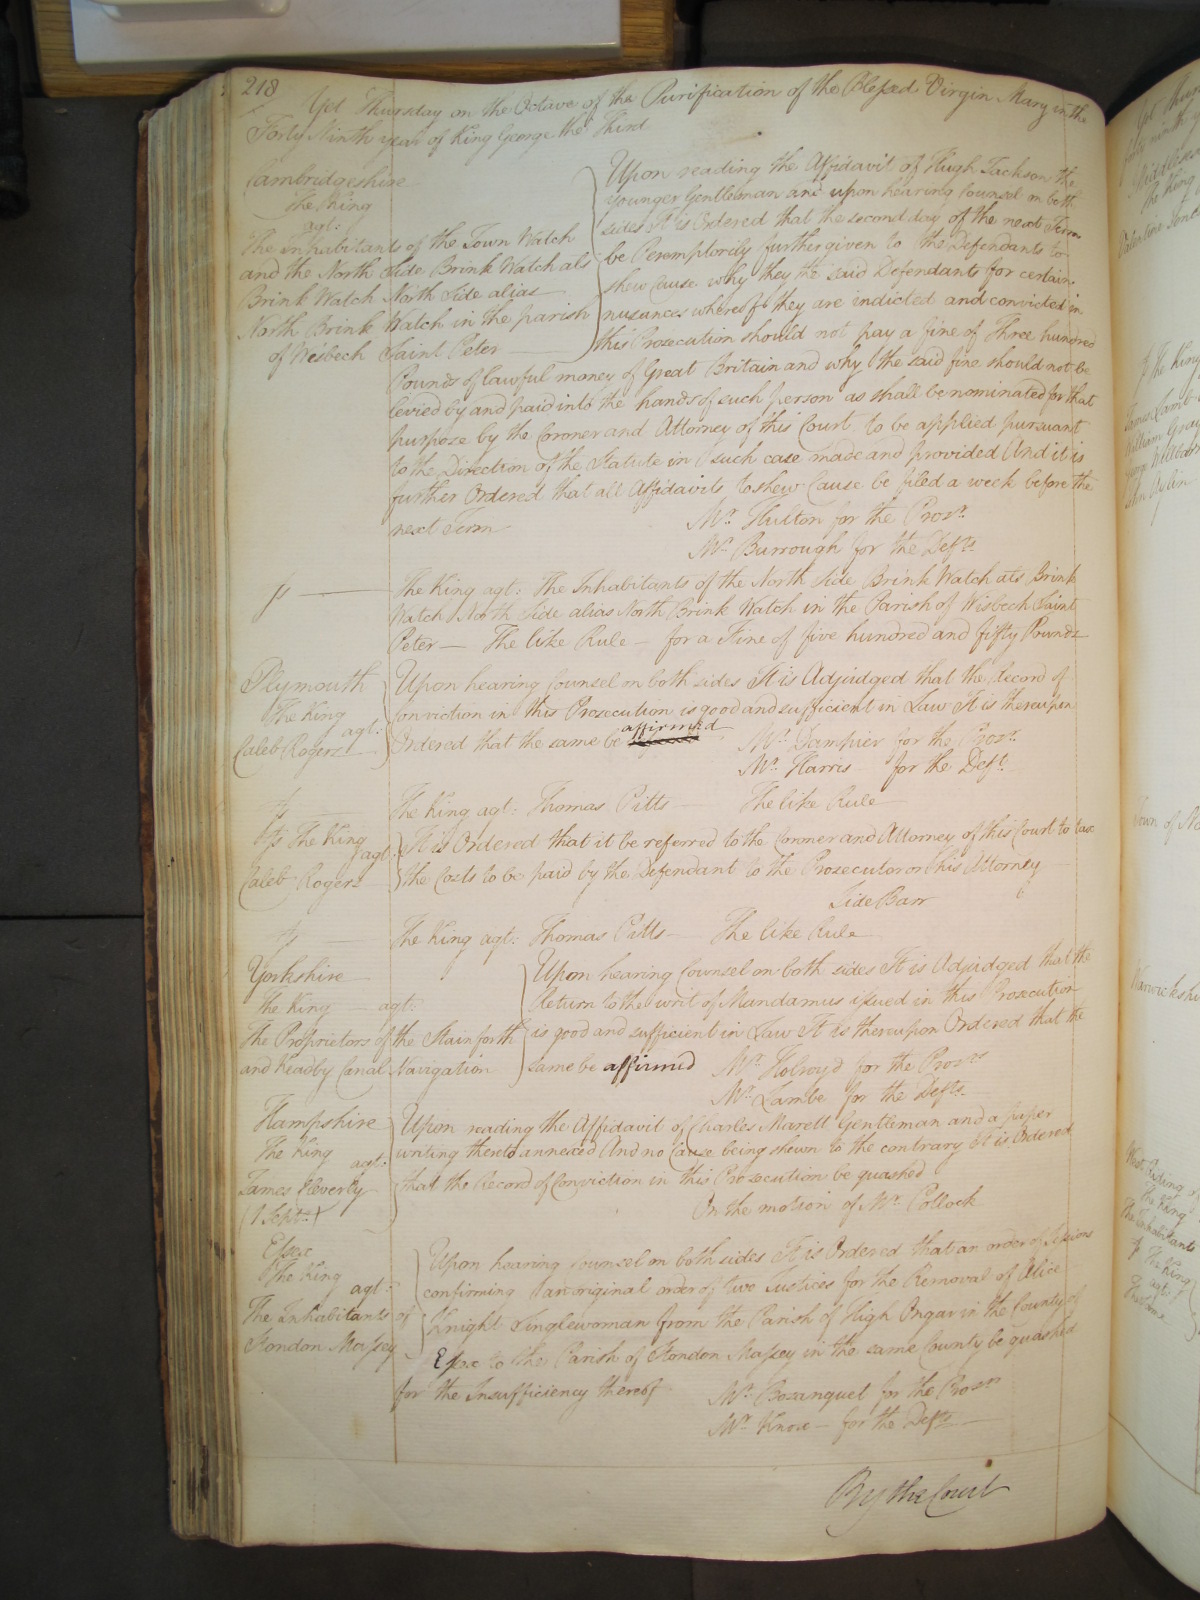 218
Yet Thursday on the Octave of the Purification of the Blessed Virgin Mary in the
Forty Ninth year of King George the Third
Cambridgeshire
The King
agt:
The inhabitants of the Town Watch
and the North Side Brink Watch als
Brink Watch North Side alias
North Brink Watch in the parish
of Wisbech Saint Peter
Upon reading the Affidavit of Hugh Jackson the
younger Gentleman and upon hearing Counsel on both
sides It is Ordered that the second day of the next Term
be Peremptorily further given to the Defendants to
shew Cause why they the said Defendants for certain
nusances whereof they are indicted and convicted in
this Prosecution should not pay a fine of Three hundred
Pounds of lawful money of Great Britain and why the said fine should not be
levied by and paid into the hands of such person as shall be nominated for that
purpose by the Coroner and Attorney of this Court to be applied pursuant
to the Direction of the Statute in such case made and provided And it is
further Ordered that all Affidavits to shew Cause be filed a week before the
next Term
Mr. Hulton for the Prosr.
Mr. Burrough for the Defts.
The King agt: The Inhabitants of the North Side Brink Watch als Brink
Watch North Side alias North Brink Watch in the Parish of Wisbech Saint
Peter — The like Rule — for a Fine of five hundred and fifty Pounds
Plymouth
The King
agt:
Caleb Rogers
Upon hearing Counsel on both sides It is Adjudged that the Record of
Conviction in this Prosecution is good and sufficient in Law It is thereupon
Ordered that the same be affirmed
Mr. Dampier for the Prosr.
Mr. Harris for the Deft.
The King agt: Thomas Pitts — The like Rule
The King
agt:
Caleb Rogers
It is Ordered that it be referred to the Coroner and Attorney of this Court to tax
the Costs to be paid by the Defendant to the Prosecutor or his Attorney
Side Barr
The King agt: Thomas Pitts — The like Rule
Yorkshire
The King — agt:
The Proprietors of the Stainforth
and Keadby Canal Navigation
Upon hearing Counsel on both sides It is Adjudged that the
Return to the writ of Mandamus issued in this Prosecution
is good and sufficient in Law It is thereupon Ordered that the
same be affirmed
Mr. Holroyd for the Prosrs
Mr. Lambe for the Defts.
Hampshire
The King
agt:
James Cleverly
(1 Septr.)
Upon reading the Affidavit of Charles Marett Gentleman and a paper
writing thereto annexed And no Cause being shewn to the contrary It is Ordered
that the Record of Conviction in this Prosecution be quashed
On the motion of Mr. Pollock
Essex
The King
agt:
The Inhabitants of
Stondon Massey
Upon hearing Counsel on both sides It is Ordered that an order of Sessions
confirming an original order of two Justices for the Removal of Alice
Knight Singlewoman from the Parish of High Ongar in the County of
Essex to the Parish of Stondon Massey in the same County be quashed
for the Insufficiency thereof
Mr. Bosanquet for the Prosrs
Mr. Knox — for the Defts
By the Court